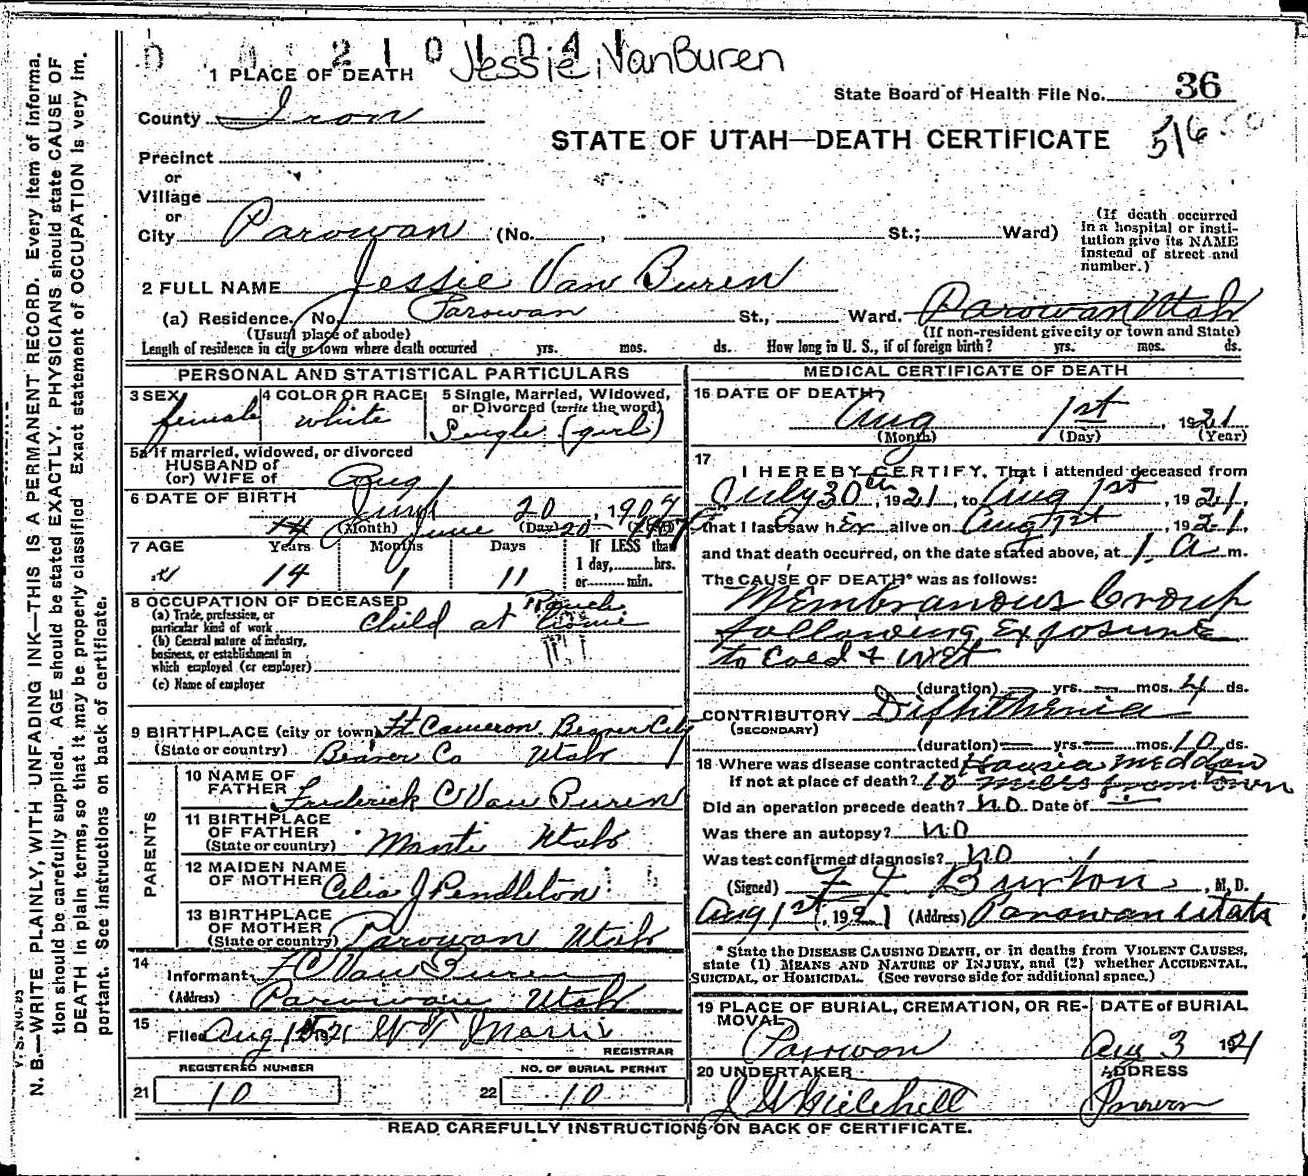 N. B.—WRITE PLAINLY, WITH UNFADING INK—THIS IS A PERMANENT RECORD. Every item of informa-
tion should be carefully supplied. AGE should be stated EXACTLY. PHYSICIANS should state CAUSE OF
DEATH in plain terms, so that it may be properly classified. Exact statement of OCCUPATION is very im-
portant. See instructions on back of certificate.
Jessie VanBuren
1 PLACE OF DEATH
State Board of Health File No. 36
County Iron
STATE OF UTAH—DEATH CERTIFICATE
516
Precinct
or
Village
or
City Parowan (No. , St.; Ward)
(If death occurred
in a hospital or insti-
tution give its NAME
instead of street and
number.)
2 FULL NAME Jessie Van Buren
(a) Residence. No. Parowan St., Ward. Parowan Utah
(Usual place of abode) (If non-resident give city or town and State)
Length of residence in city or town where death occurred yrs. mos. ds. How long in U. S., if of foreign birth? yrs. mos. ds.
PERSONAL AND STATISTICAL PARTICULARS
3 SEX female
4 COLOR OR RACE white
5 Single, Married, Widowed,
or Divorced (write the word)
Single (girl)
5a If married, widowed, or divorced
HUSBAND of
(or) WIFE of
6 DATE OF BIRTH
June 20, 1907
(Month) (Day) (Year)
June 20 1907
7 AGE Years Months Days If LESS than
1 day, hrs.
or min.
14 1 11
8 OCCUPATION OF DECEASED
(a) Trade, profession, or
particular kind of work Child at home
(b) General nature of industry,
business, or establishment in
which employed (or employer)
(c) Name of employer
9 BIRTHPLACE (city or town) Ft Cameron. Beaver City
(State or country) Beaver Co Utah
PARENTS
10 NAME OF
FATHER Frederick C Van Buren
11 BIRTHPLACE
OF FATHER
(State or country) Manti Utah
12 MAIDEN NAME
OF MOTHER Celia J Pendleton
13 BIRTHPLACE
OF MOTHER
(State or country) Parowan Utah
14
Informant F C Van Buren
(Address) Parowan Utah
15
Filed Aug 1
REGISTRAR
REGISTERED NUMBER
21 10
NO. OF BURIAL PERMIT
22 10
MEDICAL CERTIFICATE OF DEATH
16 DATE OF DEATH
Aug 1st, 1921
(Month) (Day) (Year)
17
I HEREBY CERTIFY, That I attended deceased from
July 30th, 1921, to Aug 1st, 1921,
that I last saw her alive on Aug 1st, 1921,
and that death occurred, on the date stated above, at 1 a m.
The CAUSE OF DEATH* was as follows:
Membranous Croup
following Exposure
to Cold & WET
(duration) — yrs. — mos. 4 ds.
CONTRIBUTORY Diphtheria
(SECONDARY)
(duration) — yrs. — mos. 10 ds.
18 Where was disease contracted Meddow
if not at place of death? 10 miles from town
Did an operation precede death? NO Date of —
Was there an autopsy? NO
Was test confirmed diagnosis? NO
(Signed) Burton, M. D.
Aug 1st, 1921 (Address) Parowan Utah
* State the DISEASE CAUSING DEATH, or in deaths from VIOLENT CAUSES,
state (1) MEANS AND NATURE OF INJURY, and (2) whether ACCIDENTAL,
SUICIDAL, or HOMICIDAL. (See reverse side for additional space.)
19 PLACE OF BURIAL, CREMATION, OR RE-
MOVAL
Parowan
DATE of BURIAL
Aug 3 1921
20 UNDERTAKER
ADDRESS
Parowan
READ CAREFULLY INSTRUCTIONS ON BACK OF CERTIFICATE.